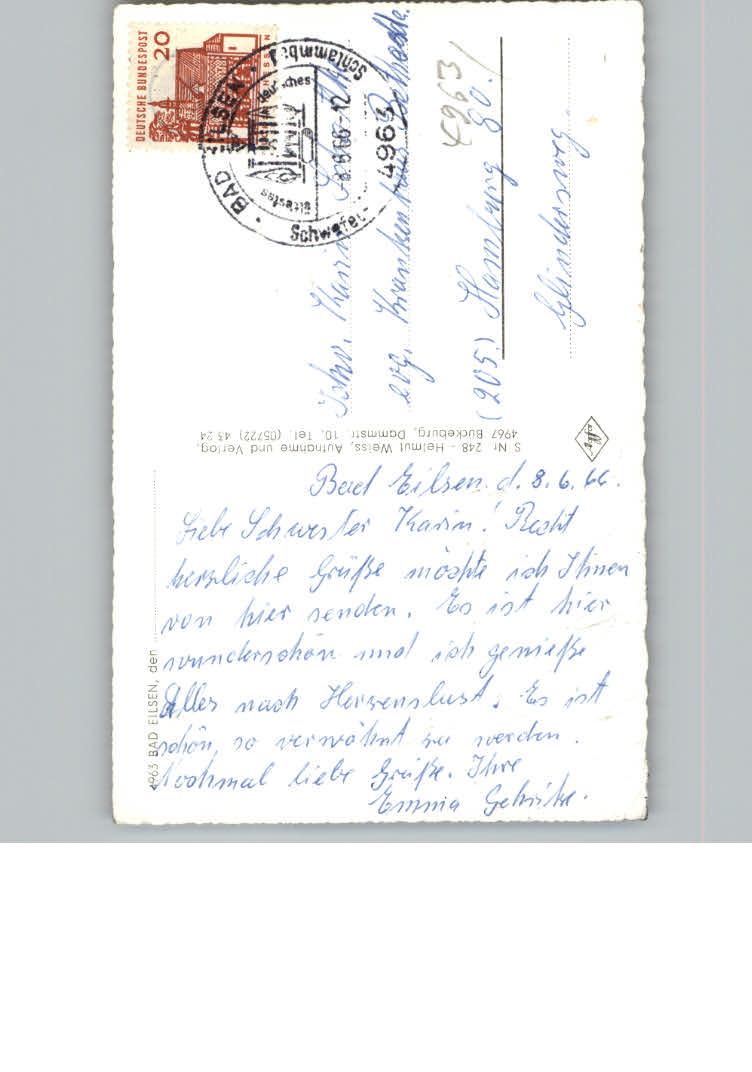 Bad Eilsen, d. 8.6.66.
Liebe Schwester Karin! Recht
herzliche Grüße möchte ich Ihnen
von hier senden. Es ist hier
wunderschön und ich genieße
Alles nach Herzenslust. Es ist
schön, so verwöhnt zu werden.
Nochmal liebe Grüße. Ihre
Emma Gehrike.
4963 BAD EILSEN, den
S Nr. 248 – Helmut Weiss, Aufnahme und Verlag,
4967 Bückeburg, Dammstr. 10, Tel. (05722) 43 24
DEUTSCHE BUNDESPOST
20
BAD EILSEN
4963
8.6.66-12
Ältestes
deutsches
Schwefel-
Schlammbad
Schw. Karin
evg. Krankenhaus
(205) Hamburg 80.
Glindersweg
4963/